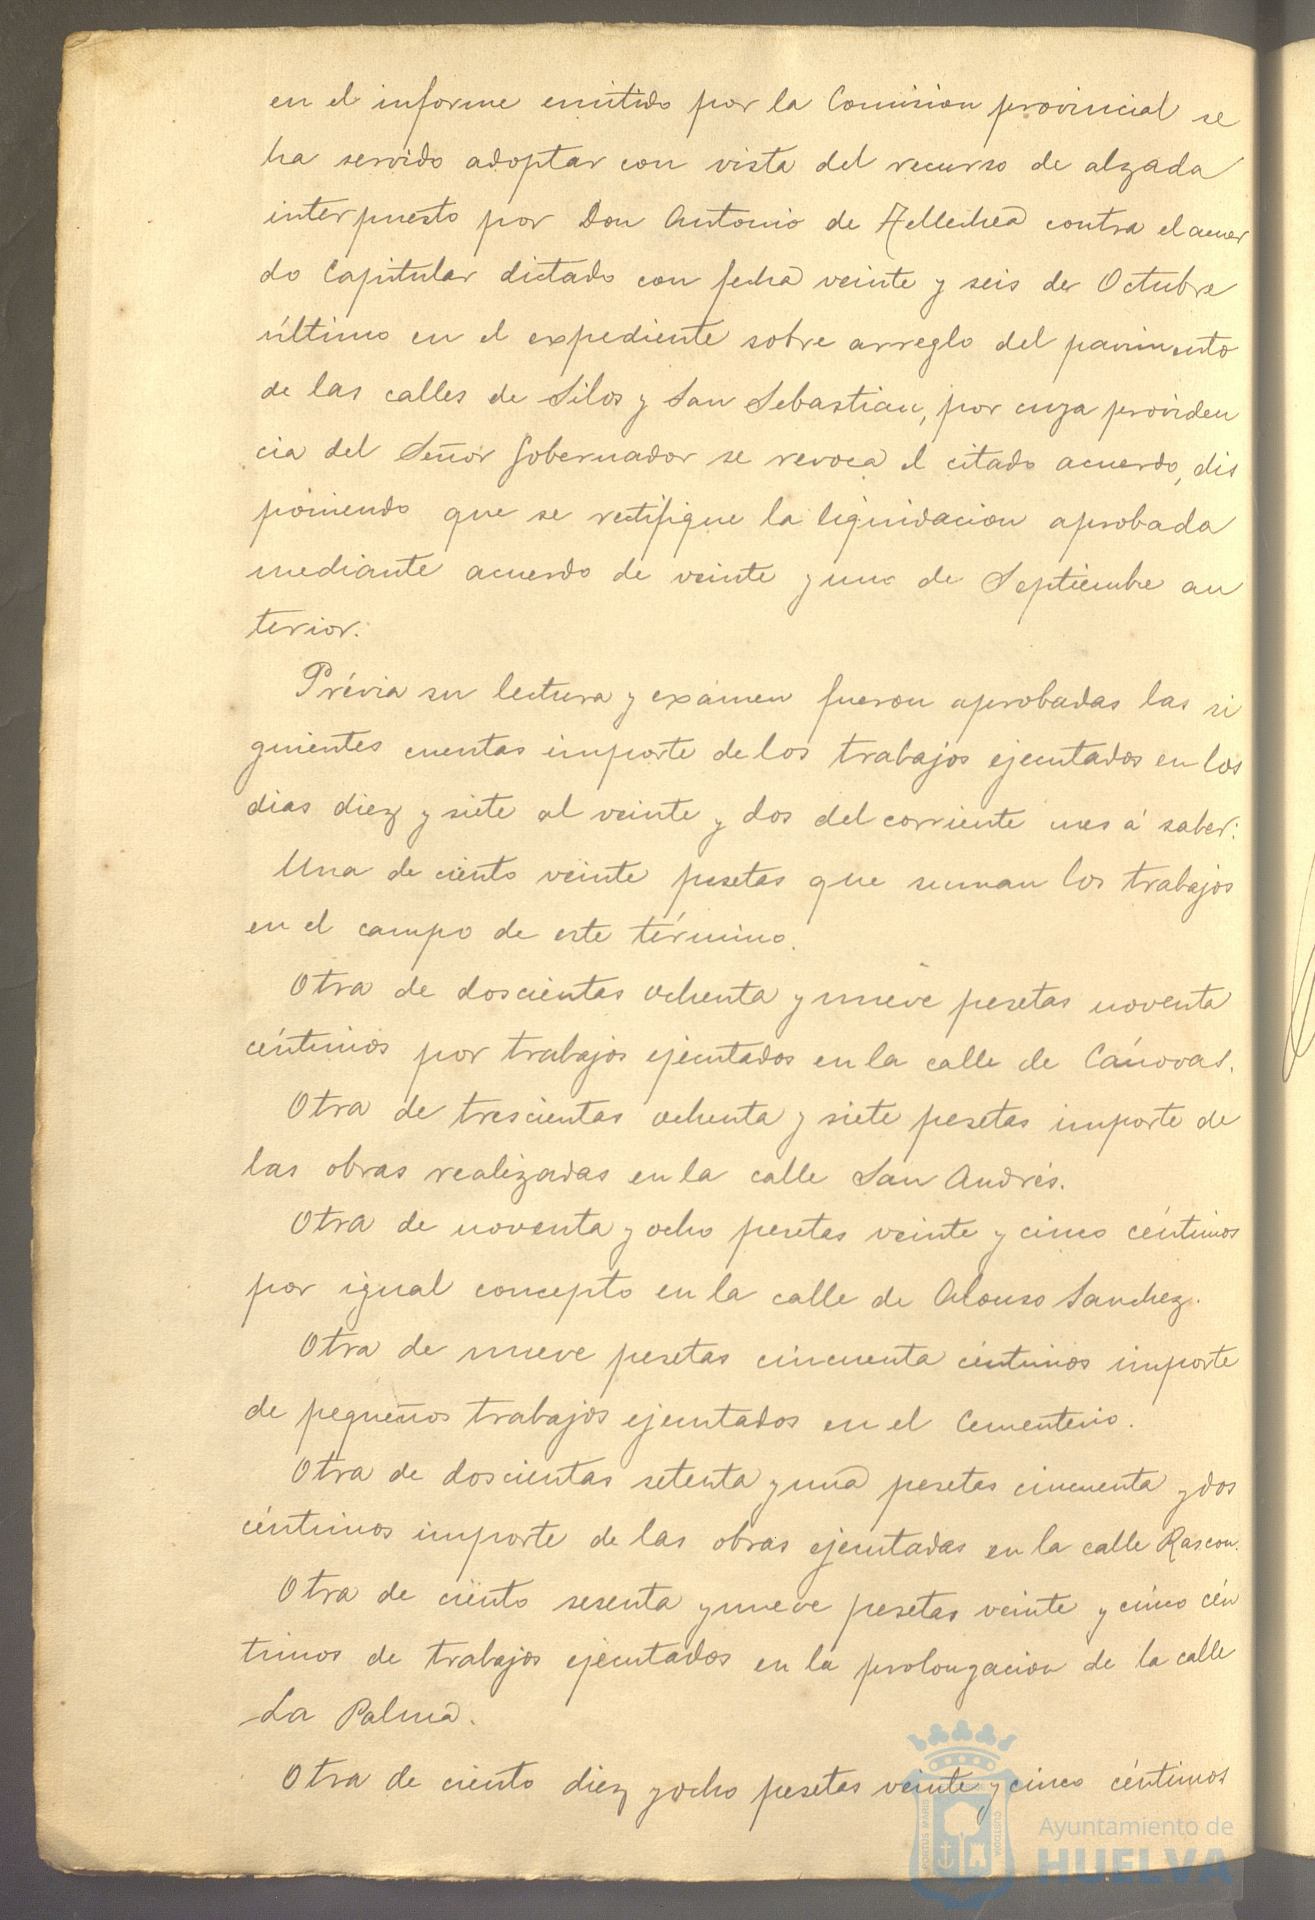 en el informe emitido por la Comision provincial se
ha servido adoptar con vista del recurso de alzada
interpuesto por Don Antonio de contra el acuer
do Capitular dictado con fecha veinte y seis de Octubre
último en el expediente sobre arreglo del pavimento
de las calles de Silos y San Sebastian, por cuya providen
cia del Señor Gobernador se revoca el citado acuerdo, dis
poniendo que se rectifique la liquidacion aprobada
mediante acuerdo de veinte y uno de Septiembre an
terior.
Prévia su lectura y exámen fueron aprobadas las si
guientes cuentas importe de los trabajos ejecutados en los
dias diez y siete al veinte y dos del corriente mes á saber:
Una de ciento veinte pesetas que suman los trabajos
en el campo de este término.
Otra de doscientas ochenta y nueve pesetas noventa
céntimos por trabajos ejecutados en la calle de Cánovas.
Otra de trescientas ochenta y siete pesetas importe de
las obras realizadas en la calle San Andrés.
Otra de noventa y ocho pesetas veinte y cinco céntimos
por igual concepto en la calle de Alonso Sanchez.
Otra de nueve pesetas cincuenta céntimos importe
de pequeños trabajos ejecutados en el Cementerio.
Otra de doscientas setenta y una pesetas cincuenta y dos
céntimos importe de las obras ejecutadas en la calle Rascon.
Otra de ciento sesenta y nueve pesetas veinte y cinco cén
timos de trabajos ejecutados en la prolongacion de la calle
La Palma.
Otra de ciento diez y ocho pesetas veinte y cinco céntimos
Ayuntamiento de
HUELVA